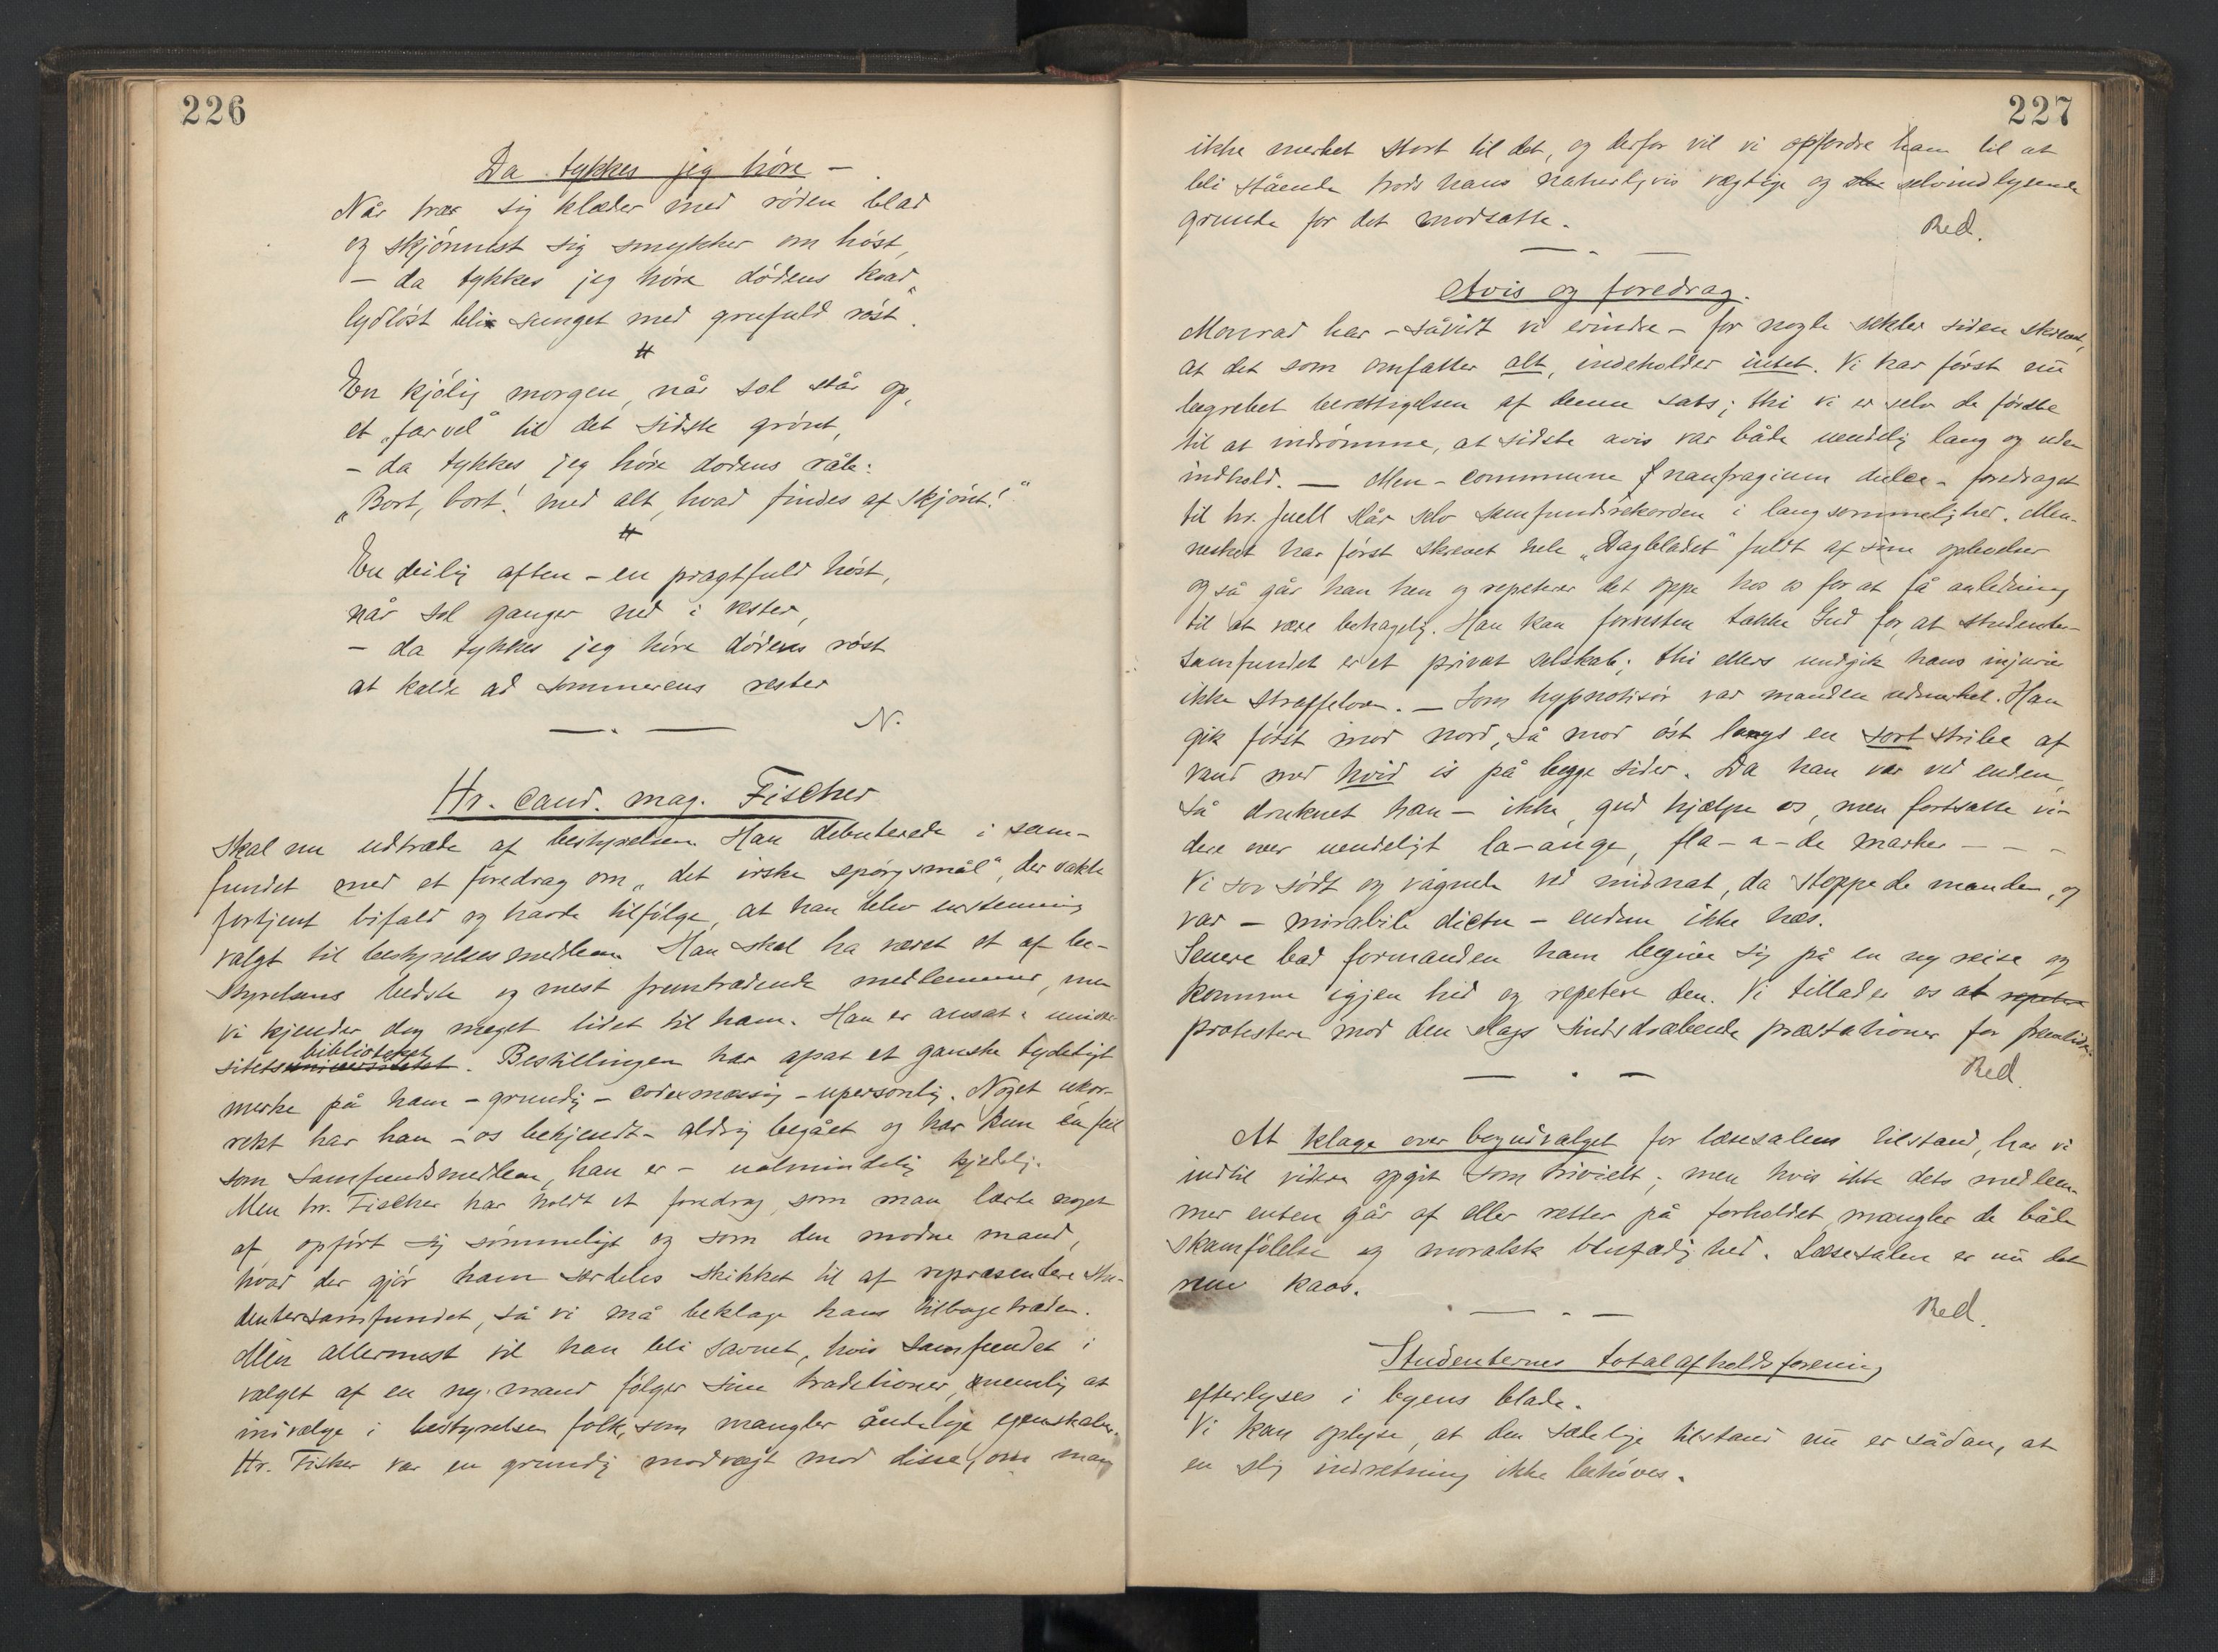 226
Da tykkes jeg høre –
Når trær sig klæder med røden blad
og skjønnest sig smykker om høst,
– da tykkes jeg høre dødens kvad
lydløst bli sunget med grufuld røst.
#
En kjølig morgen, når sol står op,
et „farvel" til det sidste grønt,
– da tykkes jeg høre dødens råb:
„Bort, bort! med alt, hvad findes af skjønt!"
#
En deilig aften – en pragtfuld høst,
når sol ganger ned i vester,
– da tykkes jeg høre dødens røst
at kalde ad sommerens rester
N.
Hr. cand. mag. Fischer
skal nu udtræde af bestyrelsen. Han debuterede i sam-
fundet med et foredrag om „det irske spørgsmål", der vakte
fortjent bifald og havde tilfølge, at han blev enstemmig
valgt til bestyrelsesmedlem. Han skal ha været et af be-
styrelsens bedste og mest fremtrædende medlemmer, men
vi kjender dog meget lidet til ham. Han er ansat i univer-
sitetsbiblioteket. Bestillingen har apat et ganske tydeligt
merke på ham – grundig – codexmæssig – upersonlig. Noget ukor-
rekt har han – os bekjendt – aldrig begået og har kun én feil
som samfundsmedlem, han er – ualmindelig kjedelig.
Men hr. Fischer har holdt et foredrag, som man lærte noget
af, opført sig sømmeligt og som den modne mand,
hvad der gjør ham særdeles skikket til af repræsentere stu-
dentersamfundet, så vi må beklage hans tilbagetræden.
Men allermest vil han bli savnet, hvis samfundet i
valget af en ny mand følger sine traditioner, nemlig at
indvælge i bestyrelsen folk, som mangler åndelige egenskaber.
Hr. Fisher var en grundig modvægt mod disse, om man
227
ikke merket stort til det, og derfor vil vi opfordre ham til at
bli stående trods hans naturligvis vægtige og selvindlysende
grunde for det modsatte.
Red.
Avis og foredrag.
Monrad har – såvidt vi erindre – for nogle sekler siden skrevet,
at det som omfatter alt, indeholder intet. Vi har først nu
begrebet berettigelsen af denne sats; thi vi er selv de første
til at indrømme, at sidste avis var både uendelig lang og uden
indhold. — Men – commune naufragium dulce – foredraget
til hr. Juell slår selv samfundsrekorden i langsommelighed. Men-
nesket har først skrevet hele „Dagbladet" fuldt af sine oplevelser
og så går han hen og repeterer det oppe hos os for at få anledning
til at være behagelig. Han kan forresten takke Gud for, at studenter-
samfundet er et privat selskab; thi ellers undgik hans injurie
ikke straffeloven. — Som hypnotisør var manden udmerket. Han
gik først mod nord, så mod øst langs en sort stribe af
vand med hvid is på begge sider. Da han var ved enden,
så druknet han – ikke, gud hjælpe os, men fortsatte vi-
dere over uendeligt la–ange, fla–a–de marker – – –
Vi sov sødt og vågnede ved midnat, da stoppede manden, og
var – mirabile dictu – endnu ikke hæs.
Senere bad formanden ham begive sig på en ny reise og
komme igjen hid og repetere den. Vi tillader os at
protestere mod den slags sindsdræbende præstationer for fremtiden.
Red.
At klage over bogudvalget for læsesalens tilstand, har vi
indtil videre opgit som trivielt; men hvis ikke dets medlem-
mer enten går af eller retter på forholdet, mangler de både
skamfølelse og moralsk blufærdighed. Læsesalen er nu det
rene kaos.
Red.
Studenternes totalafholdsforening
efterlyses i byens blade.
Vi kan oplyse, at den sædelige tilstand nu er sådan, at
en slig indretning ikke behøves.